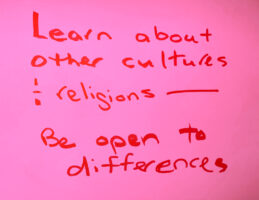 Learn about
other cultures
+ religions —
Be open to
differences